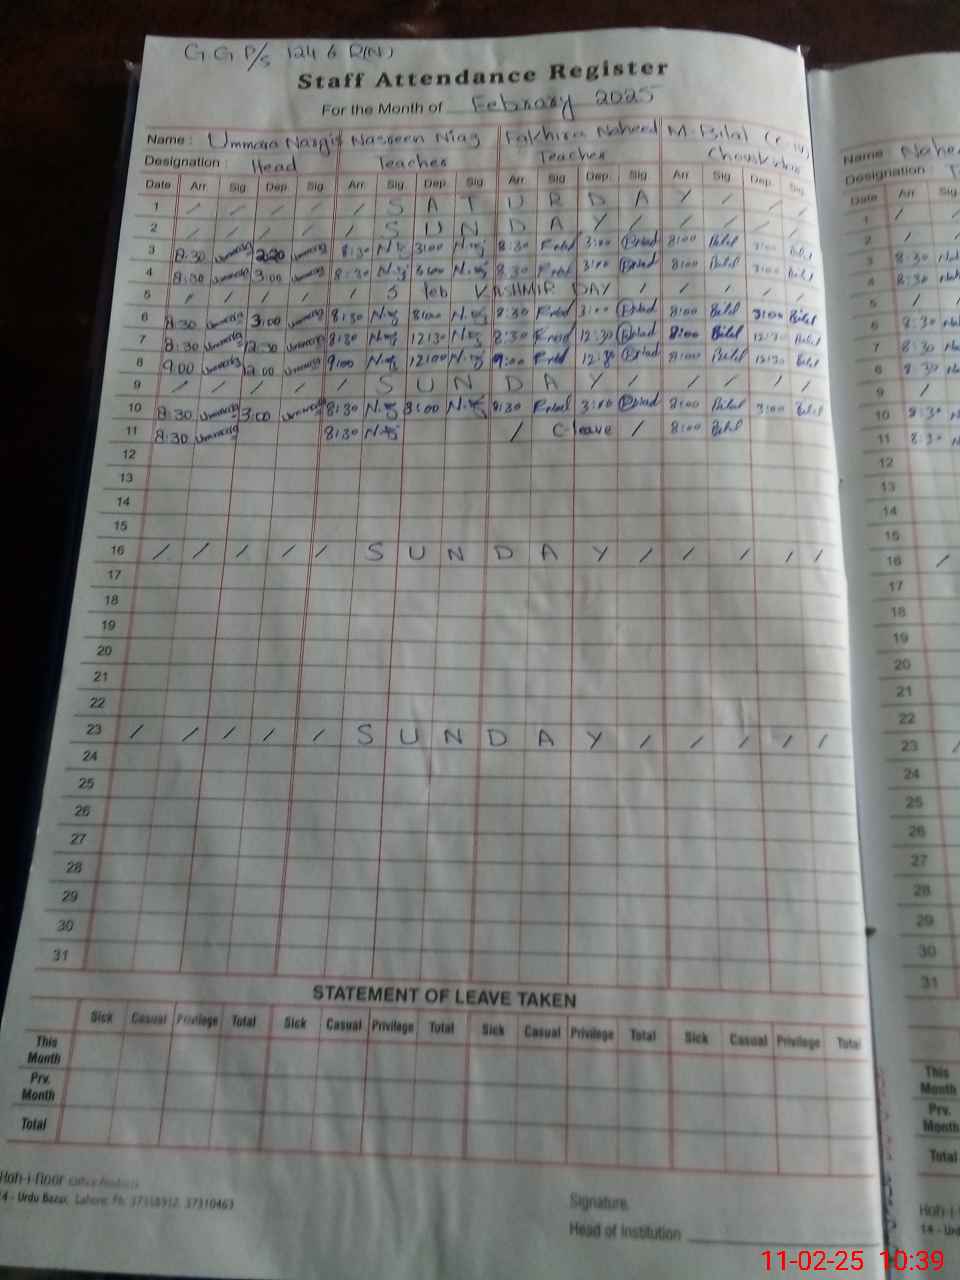 G G P/S 124 6 R(N)
Staff Attendance Register
For the Month of February 2025
Name : Ummara Nargis Nasreen Niaz Fakhira Naheed M. Bilal
Designation : Head Teacher Teacher
Date Arr. Sig. Dep. Sig. Arr. Sig. Dep. Sig. Arr. Sig Dep. Sig Arr. Sig. Dep. Sig.
1 / / / / / S A T U R D A Y / / /
2 / / / / / S U N D A Y / / / / /
3 8:30 8:30 3:00 8:30 3:00 8:00 Bilal 3:00 Bilal
4 8:30 3:00 8:30 3:00 8:30 3:00 8:00 Bilal 3:00 Bilal
5 / / / / / 5 feb KASHMIR DAY / / / / /
6 8:30 3:00 8:30 8:30 3:00 8:00 Bilal 3:00 Bilal
7 8:30 12:30 8:30 12:30 8:30 12:30 8:00 Bilal 12:30 Bilal
8 9:00 9:00 12:00 9:00 12:30 8:00 Bilal 12:30 Bilal
9 / / / / / S U N D A Y / / / / /
10 8:30 3:00 8:30 3:00 8:30 3:00 8:00 Bilal 3:00 Bilal
11 8:30 8:30 / C-leave / 8:00 Bilal
12
13
14
15
16 / / / / / S U N D A Y / / / / /
17
18
19
20
21
22
23 / / / / / S U N D A Y / / / / /
24
25
26
27
28
29
30
31
STATEMENT OF LEAVE TAKEN
Sick Casual Privilege Total Sick Casual Privilege Total Sick Casual Privilege Total Sick Casual Privilege Total
This Month
Prv. Month
Total
Signature
Head of Institution
14 - Urdu Bazar, Lahore. Ph: 37358912, 37310463
Name
Designation :
Date Arr Sig.
1 /
2 /
3 8:30
4 8:30
5 / /
6 8:30
7 8:30
8 8:30
9 /
10 8:30
11 8:30
12
13
14
15
16 /
17
18
19
20
21
22
23 /
24
25
26
27
28
29
30
31
This Month
Prv. Month
Total
11-02-25 10:39